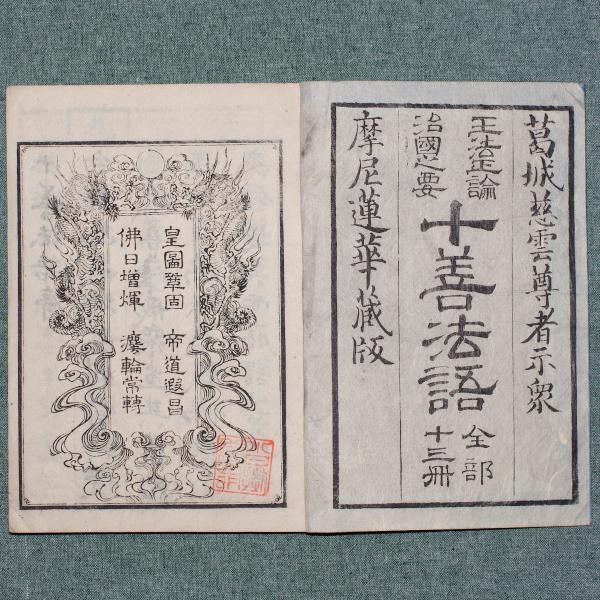 葛城慈雲尊者示衆
王法正論
治國之要
十善法語
全部
十三冊
摩尼蓮華藏版
皇圖鞏固 帝道遐昌
佛日增煇 灋輪常轉